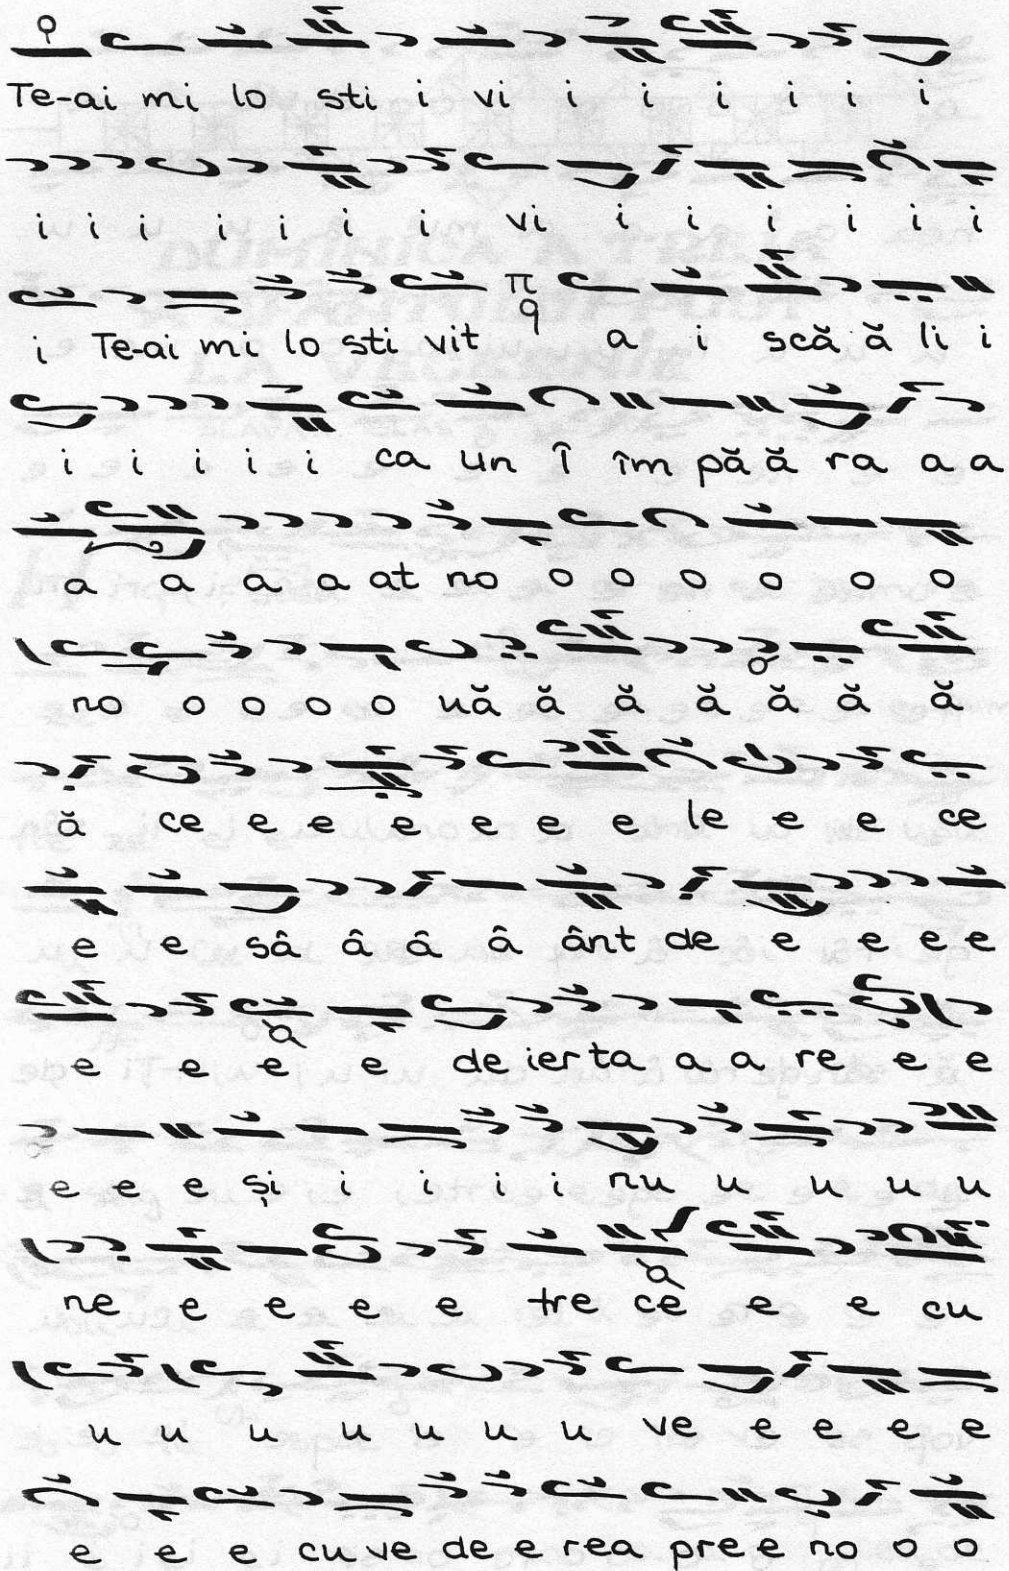 Te-ai mi lo sti i vi i i i i i i
i i i i i i i i vi i i i i i i
i Te-ai mi lo sti vit π q a i scă ă li i
i i i i i ca un î îm pă ă ra a a
a a a a at no o o o o o o
no o o o o uă ă ă ă ă ă ă
ă ce e e e e e e le e e ce
e e sâ â â â ânt de e e e e
e e e e de ier ta a a re e e
e e e și i i i i nu u u u u
ne e e e e e tre ce e e cu
u u u u u u u ve e e e e
e e e cu ve de e rea pre e no o o